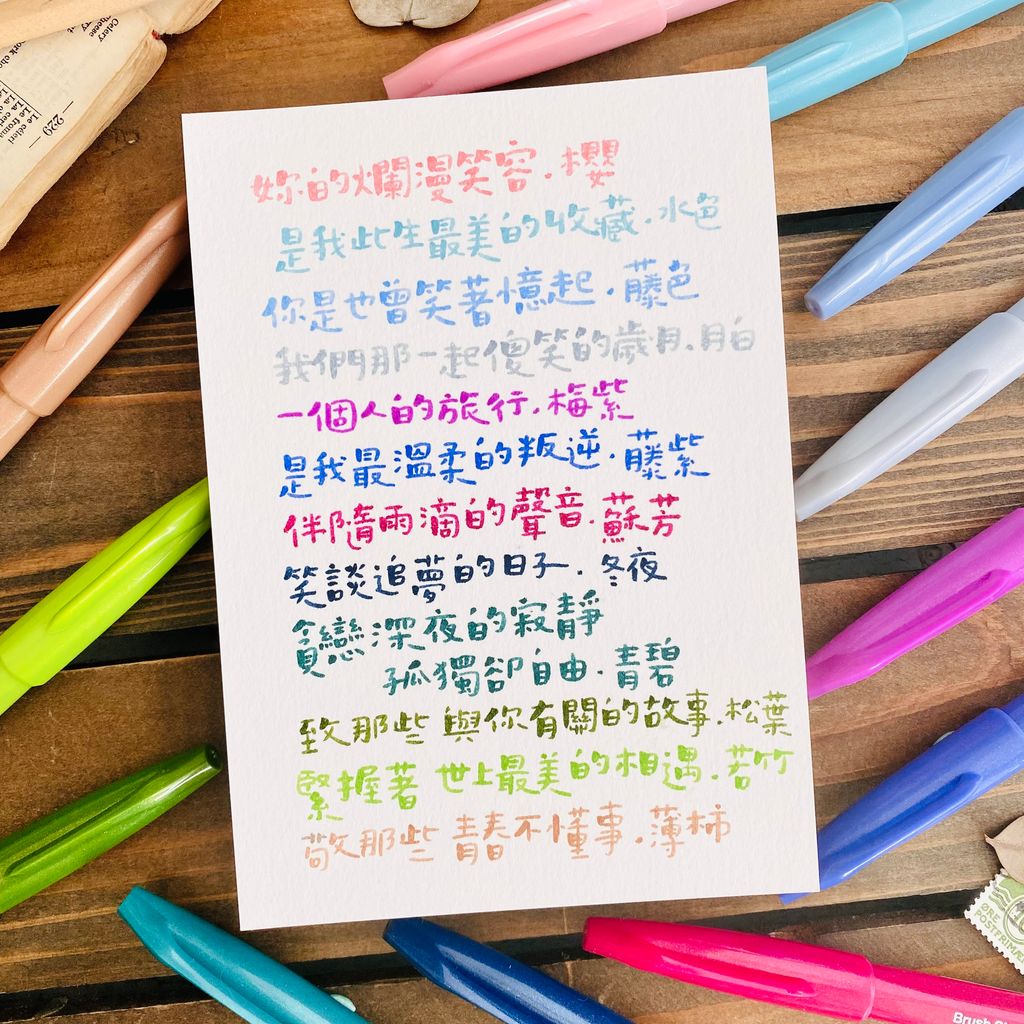 妳的爛漫笑容.櫻
是我此生最美的收藏.水色
你是也曾笑著憶起.藤色
我們那一起傻笑的歲月.月白
一個人的旅行.梅紫
是我最溫柔的叛逆.藤紫
伴隨雨滴的聲音.蘇芳
笑談追夢的日子.冬夜
貪戀深夜的寂靜
孤獨卻自由.青碧
致那些 與你有關的故事.松葉
緊握著 世上最美的相遇.若竹
敬那些 青春不懂事.薄柿
Celery
Le céleri
La ceri
Le froma
229
ØRE
POSTFRIM
Brush